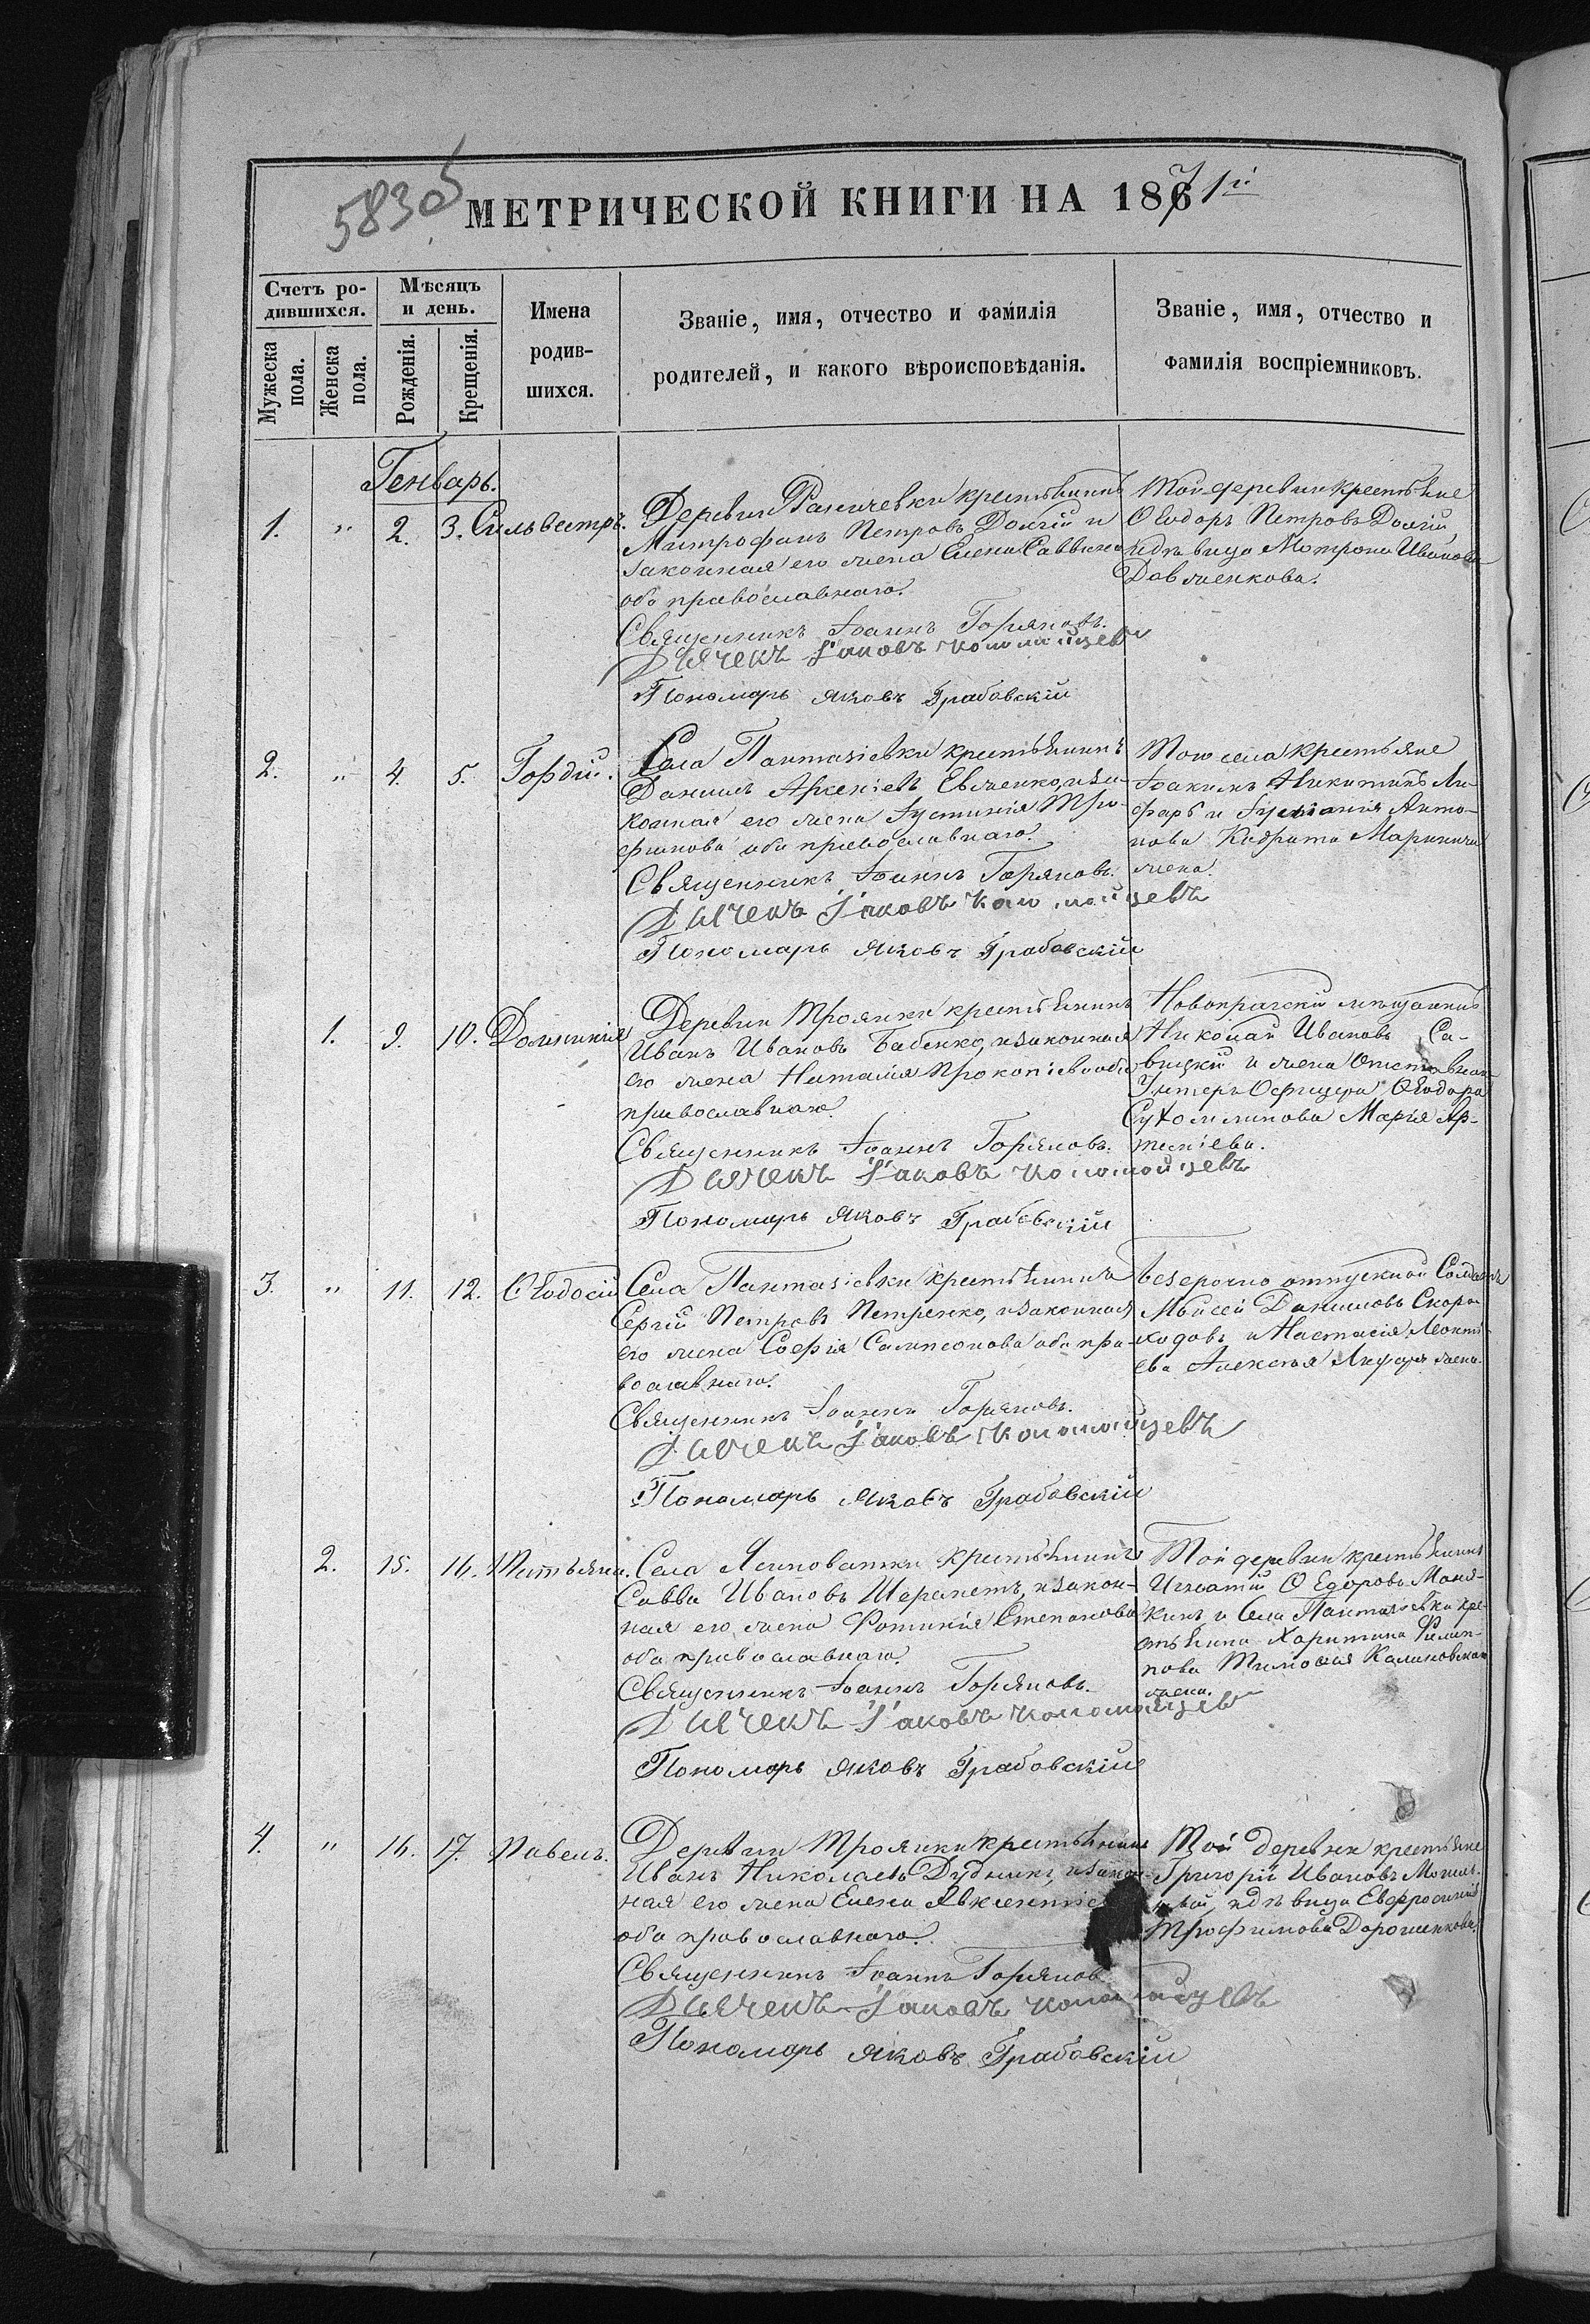 583 об
МЕТРИЧЕСКОЙ КНИГИ НА 1871й
Счетъ ро-
дившихся.
Мѣсяцъ
и день.
Имена
родив-
шихся.
Званіе, имя, отчество и фамилія
родителей, и какого вѣроисповѣданія.
Званіе, имя, отчество и
фамилія воспріемниковъ.
Мужеска
пола.
Женска
пола.
Рожденія.
Крещенія.
Генварь.
1. " 2. 3. Сильвестръ.
Деревни крестьянинъ
Митрофанъ Петровъ Долгій и
законная его жена Елена Саввина
оба православнаго.
Священникъ Іоаннъ Горяновъ.
Дьячекъ Іаковъ Коломойцевъ
Пономарь Яковъ Грабовскій
Той деревни крестьяне
Ѳеодоръ Петровъ Долгій
и дѣвица Мотрона Иванова
Довженкова.
2. " 4. 5. Гордій.
Села Пантазіевки крестьянинъ
Даніилъ Евженко, и за-
конная его жена Іустинія Тро-
фимова оба православнаго.
Священникъ Іоаннъ Горяновъ.
Дьячекъ Іаковъ Коломойцевъ
Пономарь Яковъ Грабовскій
Тогожъ села крестьяне
Іоакимъ Никитинъ Ли-
фарь и Іуліанія Анто-
нова Кодрата Маринича
жена.
1. 9. 10. Домникія
Деревни Троянки крестьянинъ
Иванъ Ивановъ Бабенко, и законная
его жена Наталія Прокопіева оба
православнаго.
Священникъ Іоаннъ Горяновъ.
Дьячекъ Іаковъ Коломойцевъ
Пономарь Яковъ Грабовскій
Новопражскій мѣщанинъ
Николай Ивановъ Са-
вицкій и жена отставнаго
Унтеръ Офицера Ѳеодора
Сухомлинова Марія Ар-
теміева.
3. " 11. 12. Ѳеодосій
Села Пантазіевки крестьянинъ
Сергій Петровъ Петренко, и законная
его жена Софія Сампсонова оба пра-
вославнаго.
Священникъ Іоаннъ Горяновъ.
Дьячекъ Іаковъ Коломойцевъ
Пономарь Яковъ Грабовскій
безсрочно отпускной Солдатъ
Мойсей Даниловъ Скоро-
ходовъ и Настасія Леонті-
ева Алексѣя Лифаря жена.
2. 15. 16. Татьяна.
Села Ясиноватки крестьянинъ
Савва Ивановъ Шереметъ, и закон-
ная его жена Фотинія Степанова
оба православнаго.
Священникъ Іоаннъ Горяновъ.
Дьячекъ Іаковъ Коломойцевъ
Пономарь Яковъ Грабовскій
Той деревни крестьянинъ
Игнатій Ѳедоровъ Маня-
кинъ и Села Пантазіевки кре-
стьянина Харитина Филип-
пова Тимофея Калиновскаго
жена.
4. " 16. 17. Павелъ.
Деревни Троянки крестьянинъ
Иванъ Николаевъ Дудникъ, и закон-
ная его жена Елена
оба православнаго.
Священникъ Іоаннъ Горяновъ
Дьячекъ Іаковъ Коломойцевъ
Пономарь Яковъ Грабовскій
Той деревни крестьяне
Григорій Ивановъ
и дѣвица Евфросинія
Трофимова Дорошенкова.